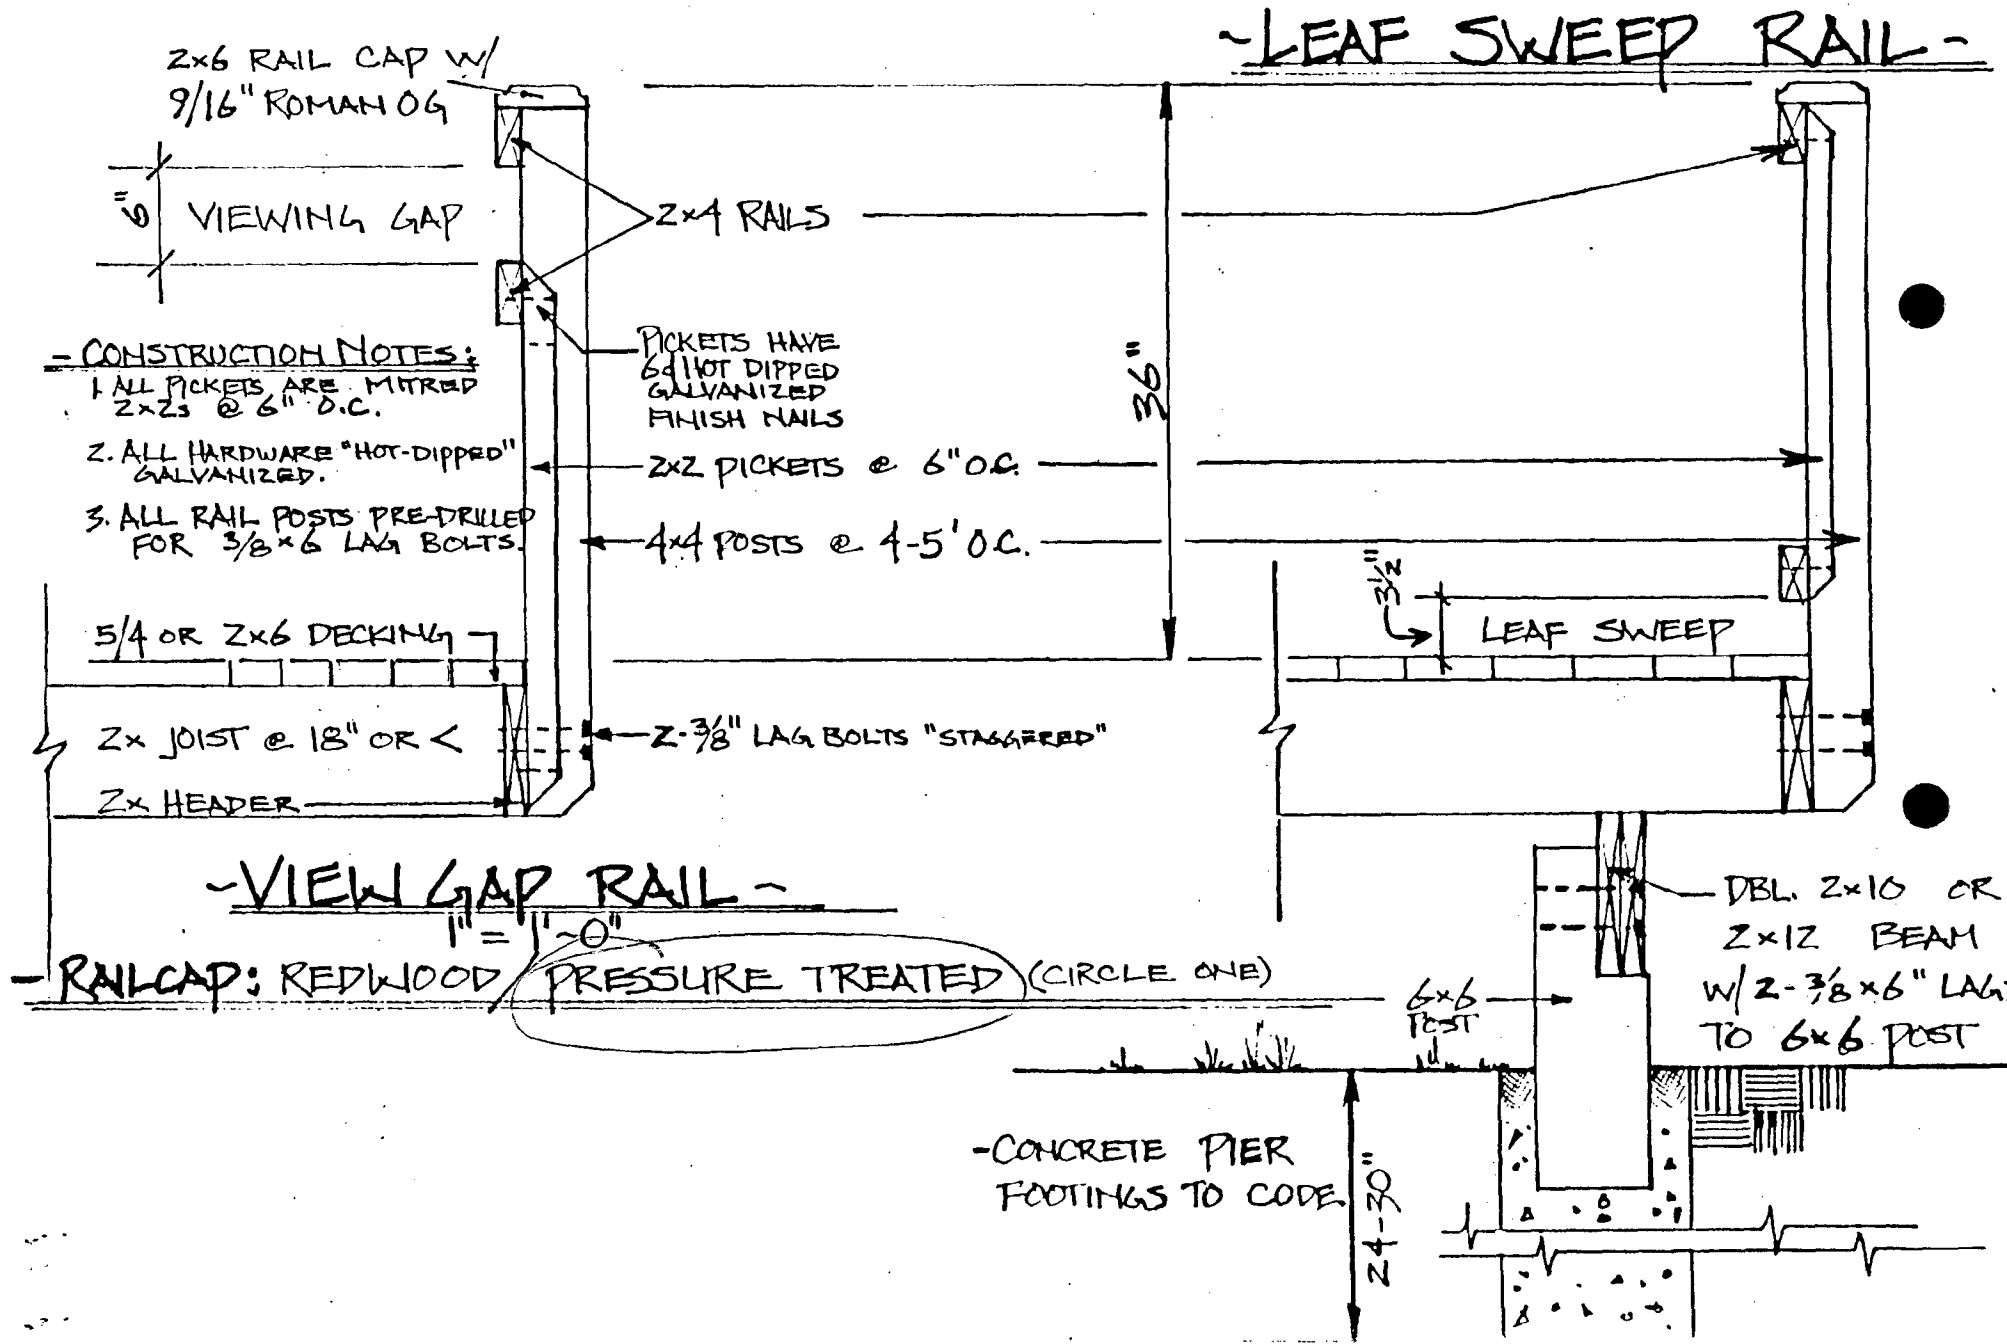 -LEAF SWEEP RAIL-
2x6 RAIL CAP W/
9/16" ROMAN OG
6"
VIEWING GAP
2x4 RAILS
36"
- CONSTRUCTION NOTES:
1. ALL PICKETS ARE MITRED
2x2s @ 6" O.C.
2. ALL HARDWARE "HOT-DIPPED"
GALVANIZED.
3. ALL RAIL POSTS PRE-DRILLED
FOR 3/8x6 LAG BOLTS.
PICKETS HAVE
6d HOT DIPPED
GALVANIZED
FINISH NAILS
2x2 PICKETS @ 6" O.C.
4x4 POSTS @ 4-5' O.C.
3½"
LEAF SWEEP
5/4 OR 2x6 DECKING
2x JOIST @ 18" OR <
2x HEADER
2-3/8" LAG BOLTS "STAGGERED"
-VIEW GAP RAIL-
1" = 1'-0"
- RAILCAP: REDWOOD / PRESSURE TREATED (CIRCLE ONE)
DBL. 2x10 OR
2x12 BEAM
W/ 2-3/8x6" LAGS
TO 6x6 POST
6x6
POST
-CONCRETE PIER
FOOTINGS TO CODE
24-30"